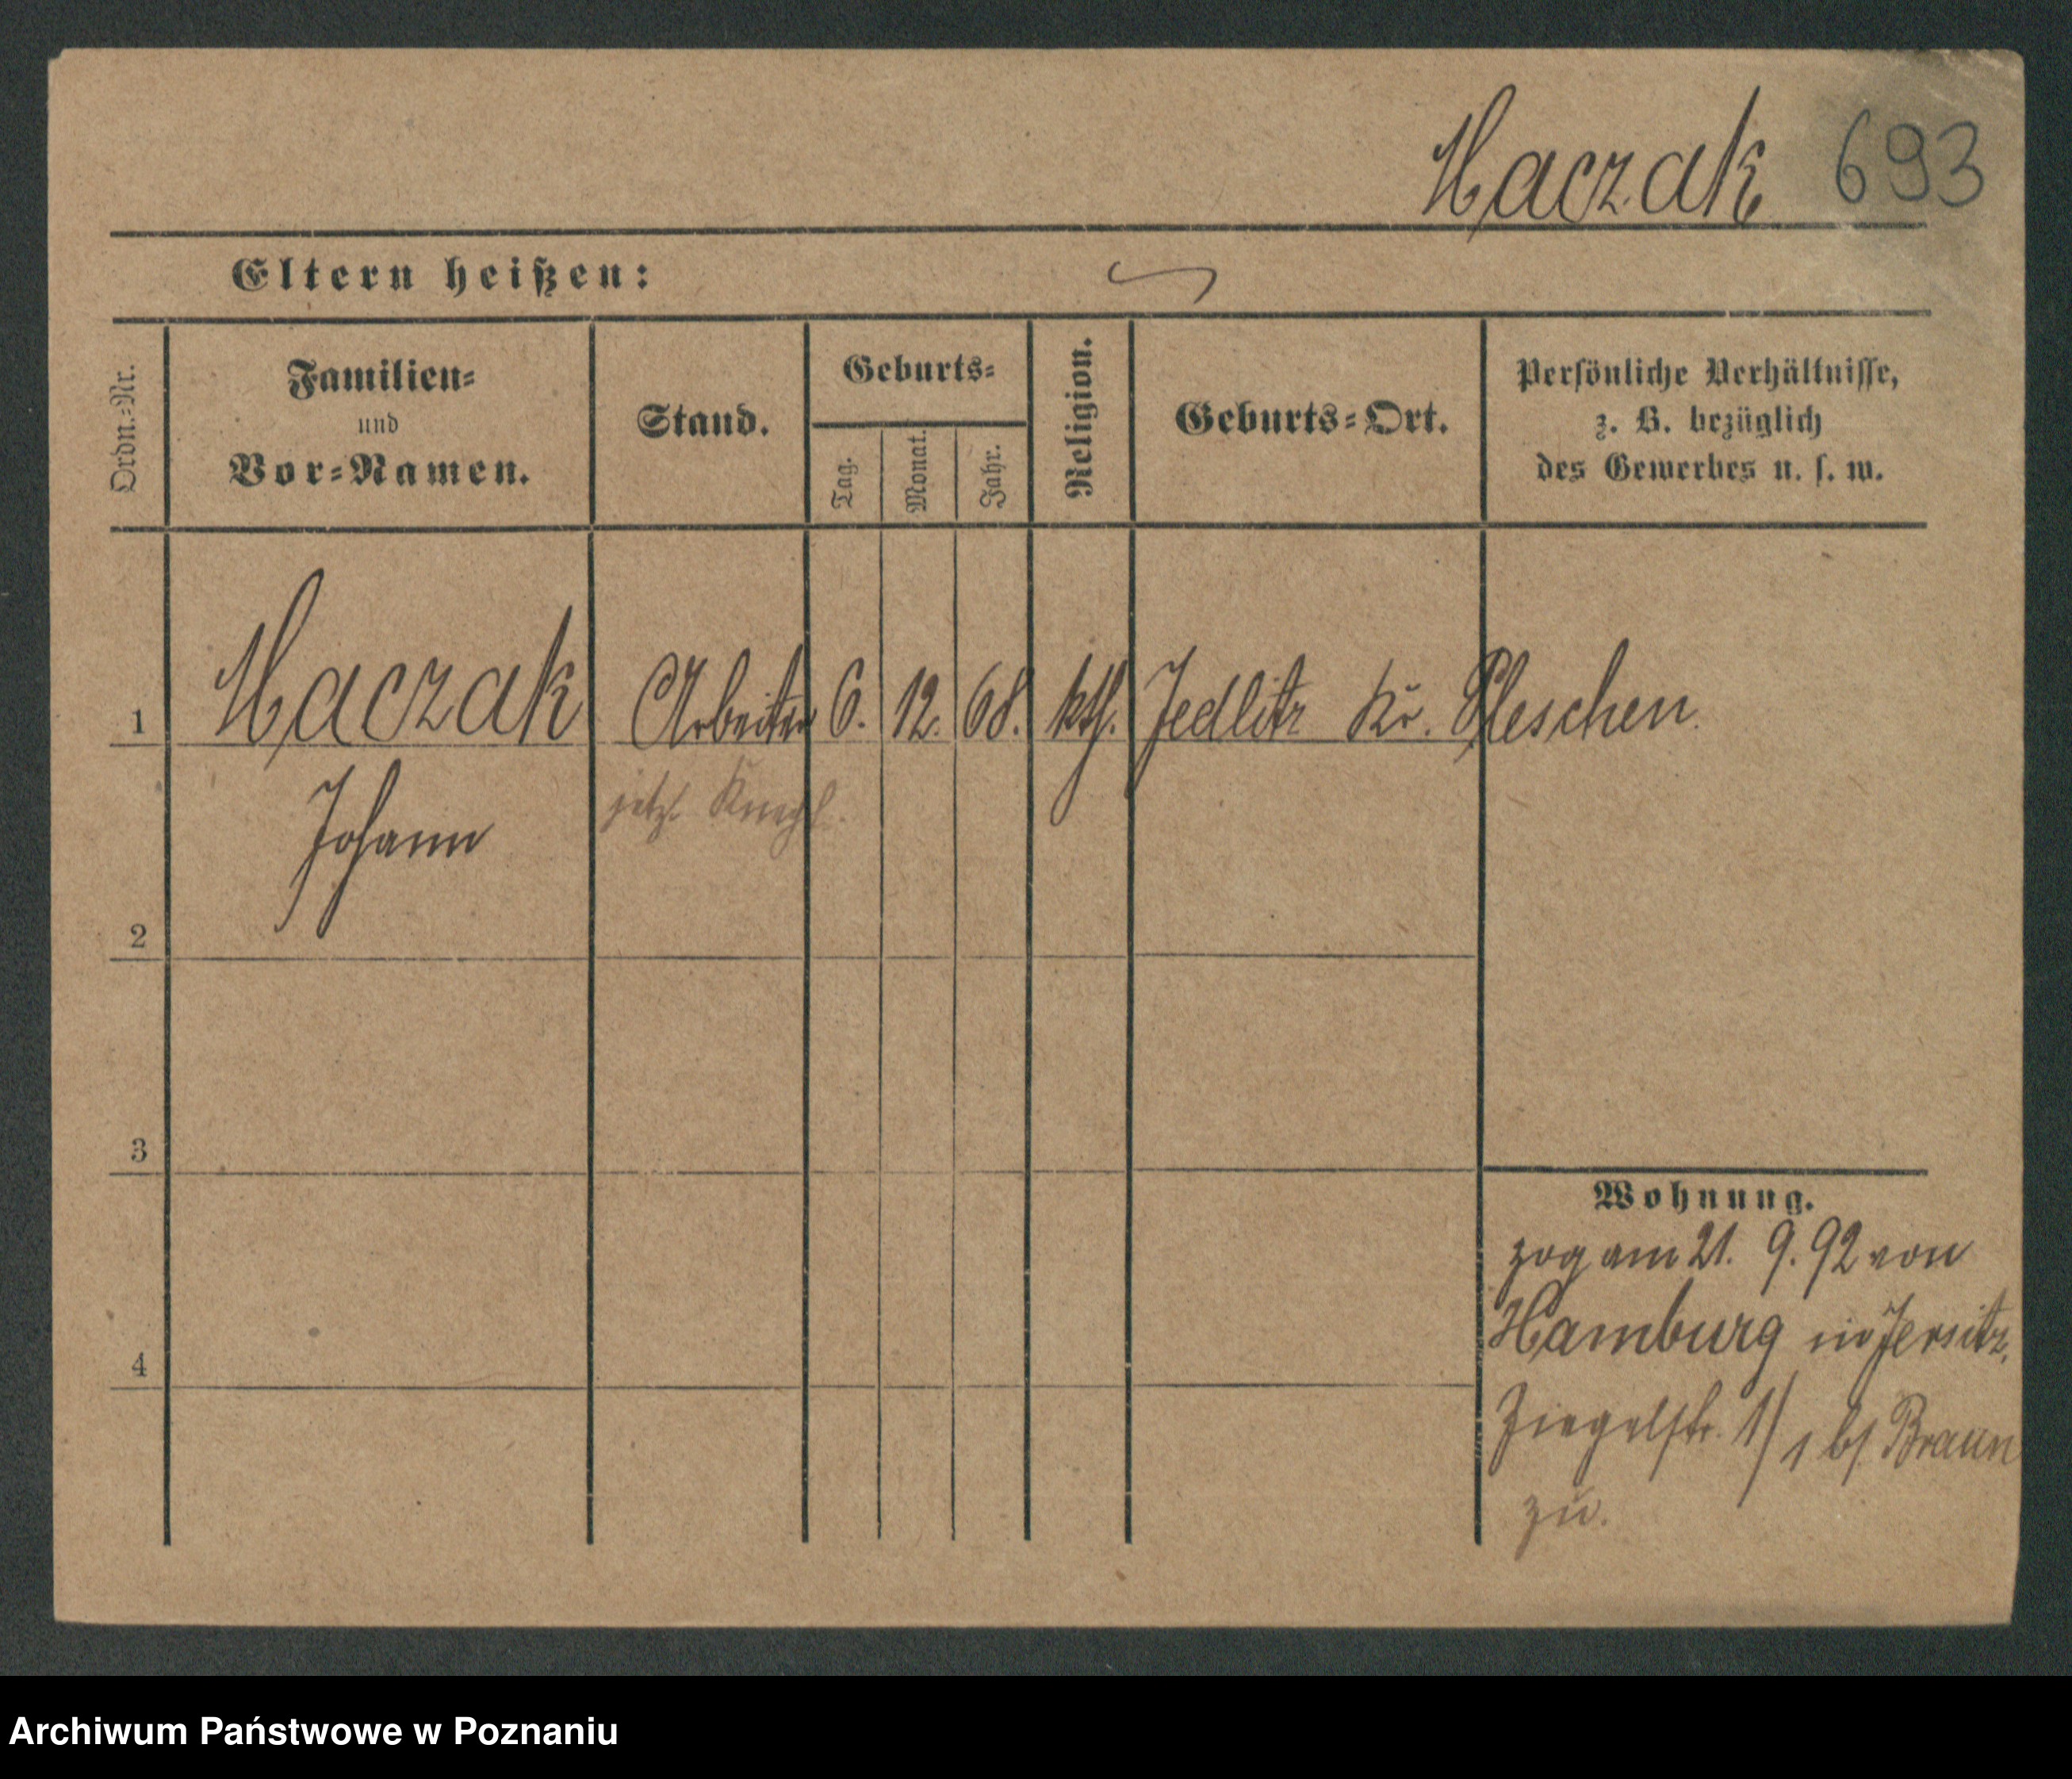 Haczak 693
Eltern heißen:
Ordn.-Nr.
Familien-
und
Vor-Namen.
Stand.
Geburts-
Tag.
Monat.
Jahr.
Religion.
Geburts-Ort.
Persönliche Verhältnisse,
z. B. bezüglich
des Gewerbes u. s. w.
1 Haczak Arbeiter 6. 12. 68. kth. Jedlitz Kr. Pleschen.
jetzt Knecht.
Johann
2
3
Wohnung.
zog am 21. 9. 92 von
Hamburg in Jersitz,
4
Ziegelstr. 1/1 bei Braun
zu.
Archiwum Państwowe w Poznaniu